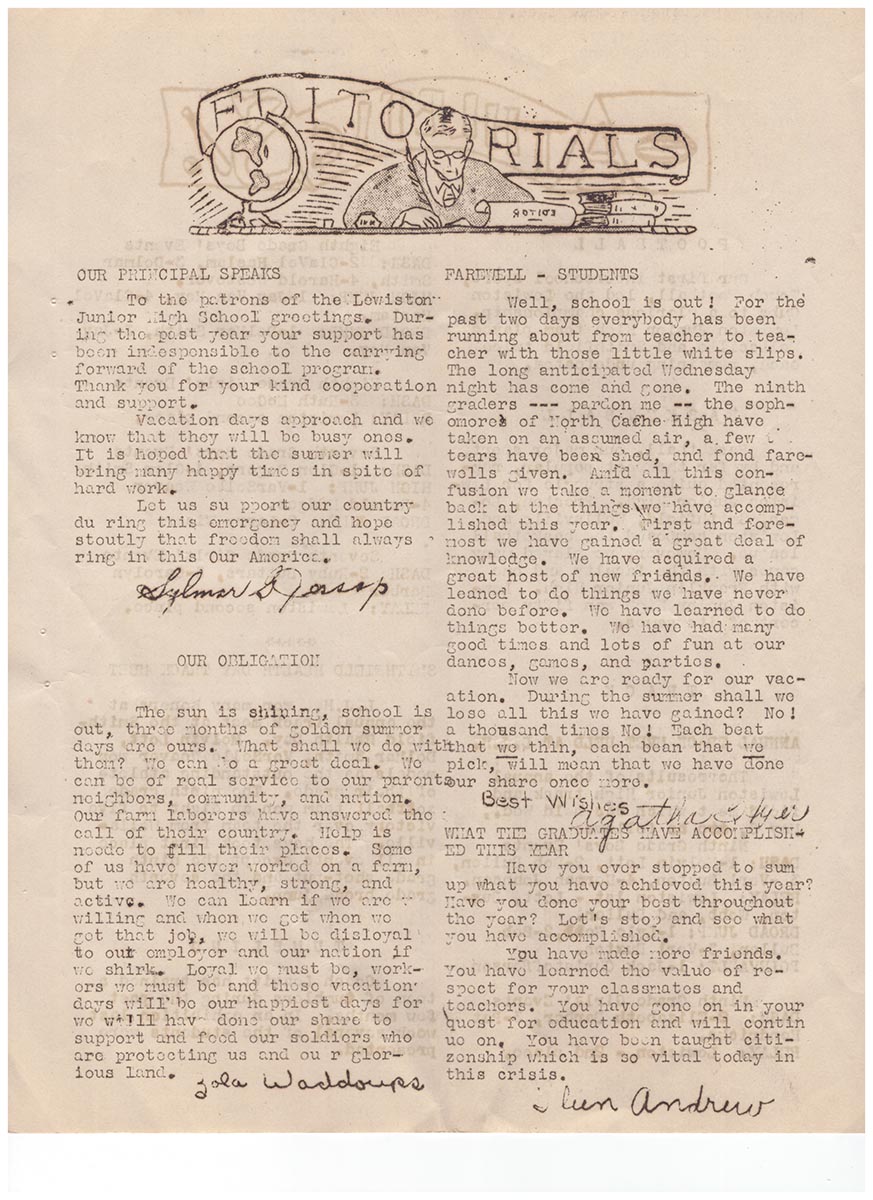 EDITORIALS
EDITOR
OUR PRINCIPAL SPEAKS
To the patrons of the Lewiston
Junior High School greetings. Dur-
ing the past year your support has
been indespensible to the carrying
forward of the school program.
Thank you for your kind cooperation
and support.
Vacation days approach and we
know that they will be busy ones.
It is hoped that the summer will
bring many happy times in spite of
hard work.
Let us su pport our country
du ring this emergency and hope
stoutly that freedom shall always
ring in this Our America.
Jessop
OUR OBLIGATION
The sun is shining, school is
out, three months of golden summer
days are ours. What shall we do with
them? We can do a great deal. We
can be of real service to our parents
neighbors, community, and nation.
Our farm laborers have answered the
call of their country. Help is
neede to fill their places. Some
of us have never worked on a farm,
but we are healthy, strong, and
active. We can learn if we are
willing and when we get when we
get that job, we will be disloyal
to our employer and our nation if
we shirk. Loyal we must be, work-
ers we must be and these vacation
days will be our happiest days for
we will have done our share to
support and feed our soldiers who
are protecting us and ou r glor-
ious land.
Zola Waddoups
FAREWELL - STUDENTS
Well, school is out! For the
past two days everybody has been
running about from teacher to tea-
cher with those little white slips.
The long anticipated Wednesday
night has come and gone. The ninth
graders --- pardon me -- the soph-
omores of North Cache High have
taken on an assumed air, a few
tears have been shed, and fond fare-
wells given. Amid all this con-
fusion we take a moment to glance
back at the things we have accomp-
lished this year. First and fore-
most we have gained a great deal of
knowledge. We have acquired a
great host of new friends. We have
leaned to do things we have never
done before. We have learned to do
things better. We have had many
good times and lots of fun at our
dances, games, and parties.
Now we are ready for our vac-
ation. During the summer shall we
lose all this we have gained? No!
a thousand times No! Each beet
that we thin, each bean that we
pick, will mean that we have done
our share once more.
Best Wishes
Agatha
WHAT THE GRADUATES HAVE ACCOMPLISH-
ED THIS YEAR
Have you ever stopped to sum
up what you have achieved this year?
Have you done your best throughout
the year? Let's stop and see what
you have accomplished.
You have made more friends.
You have learned the value of re-
spect for your classmates and
teachers. You have gone on in your
quest for education and will contin
ue on. You have been taught citi-
zenship which is so vital today in
this crisis.
Andrew